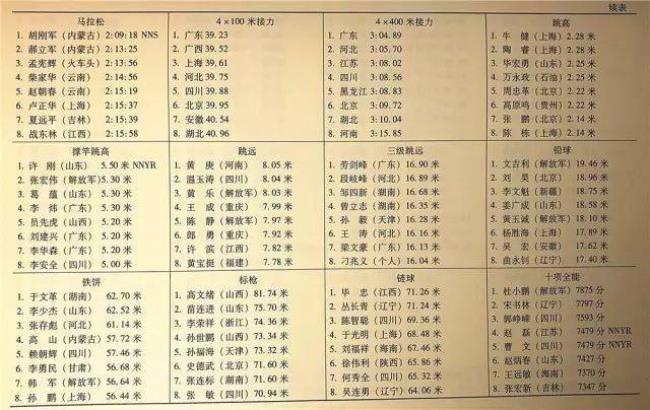 续表
马拉松
1. 胡刚军（内蒙古）2:09:18 NNS
2. 郝立军（内蒙古）2:13:25
3. 孟宪辉（火车头）2:13:56
4. 柴家华（云南）2:14:56
5. 赵朝春（云南）2:15:19
6. 卢正华（上海）2:15:37
7. 夏远平（吉林）2:15:39
8. 战东林（江西）2:15:58
4×100米接力
1. 广东 39.23
2. 广西 39.52
3. 上海 39.61
4. 河北 39.75
5. 四川 39.88
6. 北京 39.95
7. 安徽 40.54
8. 湖北 40.96
4×400米接力
1. 广东 3:04.89
2. 河北 3:05.70
3. 江苏 3:08.02
4. 四川 3:08.56
5. 黑龙江 3:08.83
6. 北京 3:09.72
7. 湖北 3:10.04
8. 河南 3:15.85
跳高
1. 牛 健（上海）2.28 米
2. 陶 睿（上海）2.28 米
3. 毕宏勇（山东）2.25 米
4. 万永政（石油）2.25 米
5. 周忠革（北京）2.22 米
6. 高原鸣（贵州）2.22 米
7. 张 鹏（北京）2.14 米
8. 陈 栋（上海）2.14 米
撑竿跳高
1. 许 刚（山东）5.50 米 NNYR
2. 张宏伟（解放军）5.30 米
3. 葛 蕴（山东）5.30 米
4. 李 炜（广东）5.30 米
5. 员先虎（山西）5.20 米
6. 刘建兴（广东）5.20 米
7. 李华森（广东）5.20 米
8. 李安全（四川）5.00 米
跳远
1. 黄 庚（河南）8.05 米
2. 温玉涛（四川）8.04 米
3. 黄 乐（解放军）8.03 米
4. 王 成（重庆）7.99 米
5. 陈 静（解放军）7.97 米
6. 郎 勇（重庆）7.92 米
7. 许 滨（江西）7.82 米
8. 黄宝挺（福建）7.78 米
三级跳远
1. 劳剑峰（广东）16.90 米
2. 段岐峰（河北）16.89 米
3. 邹四新（湖南）16.68 米
4. 曾立志（湖南）16.35 米
5. 孙 毅（天津）16.28 米
6. 王 涛（河北）16.16 米
7. 梁文豪（广东）16.13 米
8. 刁兆义（个人）16.04 米
铅球
1. 文吉利（解放军）19.46 米
2. 刘 昊（北京）18.96 米
3. 李文魁（新疆）18.75 米
4. 姜广成（山东）18.58 米
5. 黄玉诚（解放军）18.10 米
6. 杨胜海（上海）17.89 米
7. 吴 宏（安徽）17.62 米
8. 曲永钊（辽宁）17.40 米
铁饼
1. 于文革（湖南）62.70 米
2. 李少杰（山东）62.52 米
3. 张存彪（河北）61.14 米
4. 高 山（内蒙古）57.72 米
5. 赖朝辉（四川）57.46 米
6. 李勇民（甘肃）56.68 米
7. 韩 军（解放军）56.64 米
8. 孙 鹏（上海）56.44 米
标枪
1. 高文绪（山西）81.74 米
2. 苗连进（山东）75.70 米
3. 李荣祥（浙江）74.36 米
4. 孙世鹏（山西）73.34 米
5. 孙福海（天津）73.32 米
6. 史德武（北京）71.60 米
7. 张连标（湖南）71.60 米
8. 张 敏（四川）70.94 米
链球
1. 毕 忠（江西）71.26 米
2. 丛长青（辽宁）71.24 米
3. 陈智聪（四川）69.36 米
4. 于光明（上海）68.48 米
5. 刘福祥（海南）67.46 米
6. 徐伟利（陕西）65.86 米
7. 何秀全（四川）65.32 米
8. 吴连勇（辽宁）64.06 米
十项全能
1. 杜小鹏（解放军）7875 分
2. 宋书林（辽宁）7797 分
3. 郭峥嵘（四川）7593 分
4. 赵 磊（江苏）7479 分 NNYR
5. 曹 文（四川）7479 分 NNYR
6. 赵炳春（山东）7427 分
7. 王远敏（海南）7370 分
8. 张宏新（吉林）7347 分